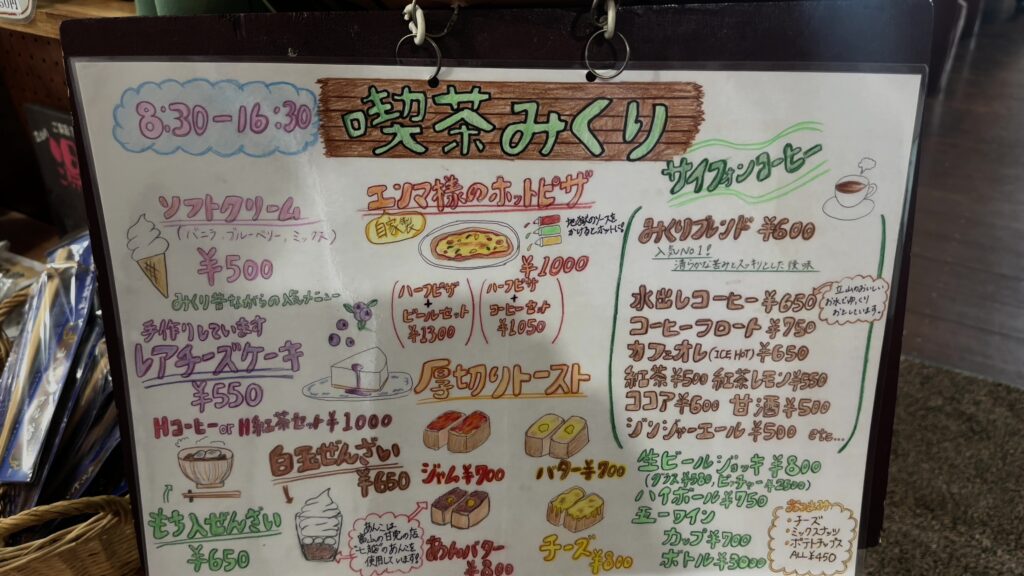 8:30-16:30
喫茶みくり
ソフトクリーム
(バニラ、ブルーベリー、ミックス)
¥500
みくり昔ながらの人気メニュー
手作りしています
レアチーズケーキ
¥550
Hコーヒー or H紅茶セット¥1000
白玉ぜんざい
¥650
もち入ぜんざい
¥650
使用しています!
エンマ様のホットピザ
自家製
地獄のソースを
かけるとホットに!
¥1000
(ハーフピザ
+
ビールセット
¥1300)
(ハーフピザ
+
コーヒーセット
¥1050)
厚切りトースト
ジャム¥700
バター¥700
あんバター
¥800
チーズ¥800
サイフォンコーヒー
みくりブレンド ¥600
人気NO.1!
清らかな苦みとスッキリとした後味
水出しコーヒー¥650
立山のおいしい
お水でゆっくり
おとしています。
コーヒーフロート¥750
カフェオレ(ICE HOT)¥650
紅茶¥500 紅茶レモン¥550
ココア¥600 甘酒¥500
ジンジャーエール¥500 etc...
生ビールジョッキ¥800
ハイボール¥750
五一ワイン
カップ¥700
ボトル¥3000
おつまみ
・チーズ
・ミックスナッツ
・ポテトチップス
ALL¥450